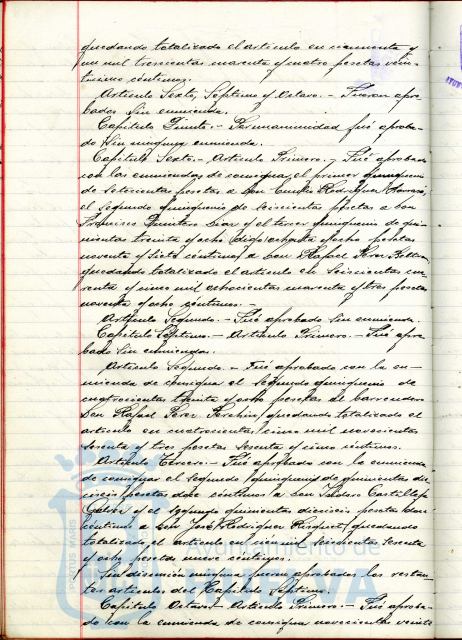 quedando totalizado el artículo en cincuenta y
un mil trescientas cuarenta y cuatro pesetas vein-
tiuno céntimos.
Artículo Sexto, Séptimo y Octavo.- Fueron apro-
bados sin enmienda.
Capítulo Quinto.- Permanunidad fué aproba-
do sin ninguna enmienda.
Capítulo Sexto.- Artículo Primero.- Fué aprobado
con las enmiendas de consignar, el primer quinquenio
de setecientas pesetas a Don Rodríguez
el segundo quinquenio de seiscientas pesetas a Don
Francisco Quintero y el tercer quinquenio de qui-
nientas treinta y ocho (digo) ochenta y ocho pesetas
noventa y siete céntimos a Don Rafael Pérez
quedando totalizado el artículo en seiscientas cua-
renta y cinco mil ochocientas cuarenta y tres pesetas
noventa y ocho céntimos.-
Artículo Segundo.- Fué aprobado sin enmienda.
Capítulo Séptimo.- Artículo Primero.- Fué apro-
bado sin enmiendas.
Artículo Segundo.- Fué aprobado con la en-
mienda de consignar el segundo quinquenio de
cuatrocientas treinta y ocho pesetas al barrendero
Don Rafael Pérez quedando totalizado el
artículo en cuatrocientas cinco mil novecientas
sesenta y tres pesetas sesenta y cinco céntimos.
Artículo Tercero.- Fué aprobado con la enmienda
de consignar el segundo quinquenio de quinientas die-
ciseis pesetas doce céntimos a Don Isidoro Castilla
Gálvez y el segundo quinquenio dieciseis pesetas doce
céntimos a Don José Rodríguez quedando
totalizado el artículo en cien mil seiscientas sesenta
y ocho pesetas nueve céntimos.
Sin discusión ninguna fueron aprobados los restan-
tes artículos del Capítulo Séptimo.
Capítulo Octavo.- Artículo Primero.- Fué aproba-
do con la enmienda de consignar novecientas veinte
Ayuntamiento de
HUELVA